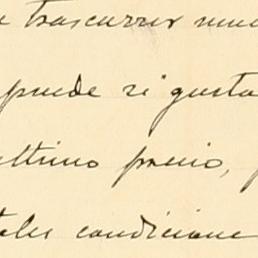 trascurrir
puede si gusta
ultimo precio,
tales condicione